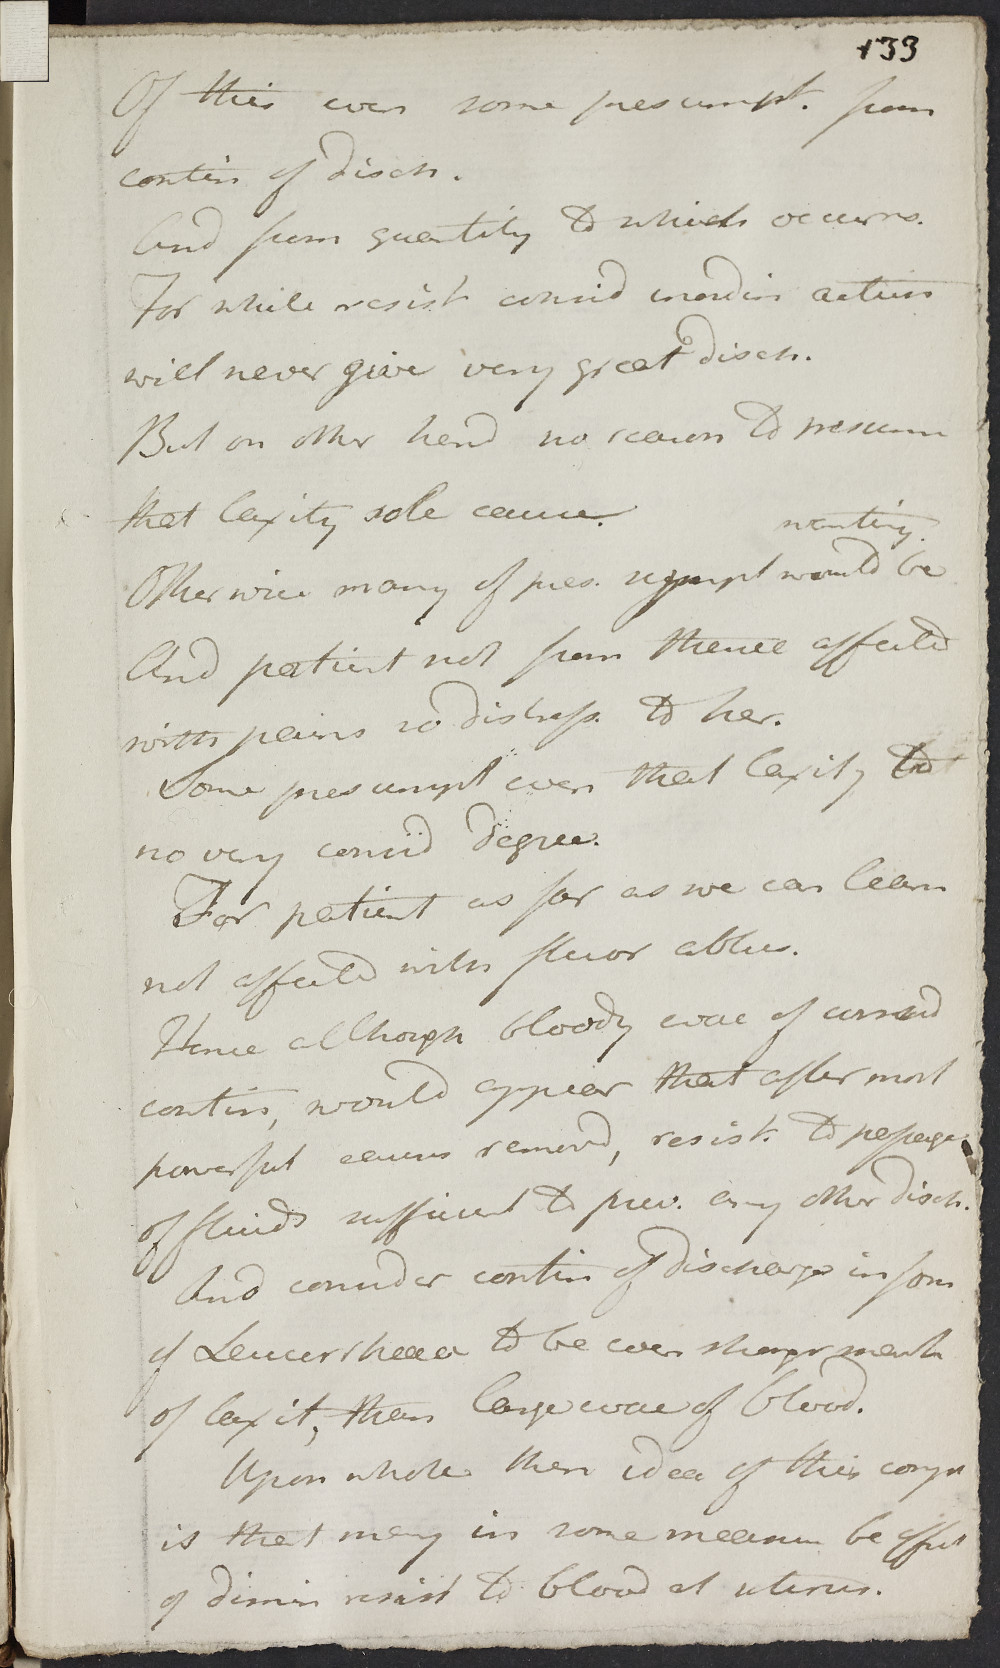 133
Of this even some presumpt. from
contin of disch.
And from quantity to which occurrs.
For while resist consid inordin action
will never give very great disch.
But on other hand no reason to presum
that laxity sole cause.
wanting.
Otherwise many of pres. sympt would be
And patient not from thence affected
with pains so distress. to her.
Some presumpt even that laxity to
no very consid degree.
For patient as far as we can learn
not affected with fluor albus.
Hence although bloody evac of consid
contin, would appear that after most
powerful causes remov'd, resist. to passage
of fluids sufficient to prev. any other disch.
And consider contin of discharge in form
of Leucorrhaea to be even stronger mark
of laxit, than large evac of blood.
Upon whole then idea of this comp
is that may in some measure be effect
of dimin resist to blood at uterus.